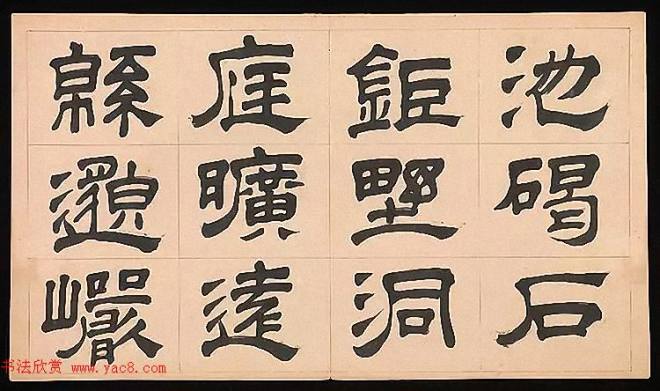 池碣石
鉅野洞
庭曠遠
緜邈巖
书法欣赏 www.yac8.com